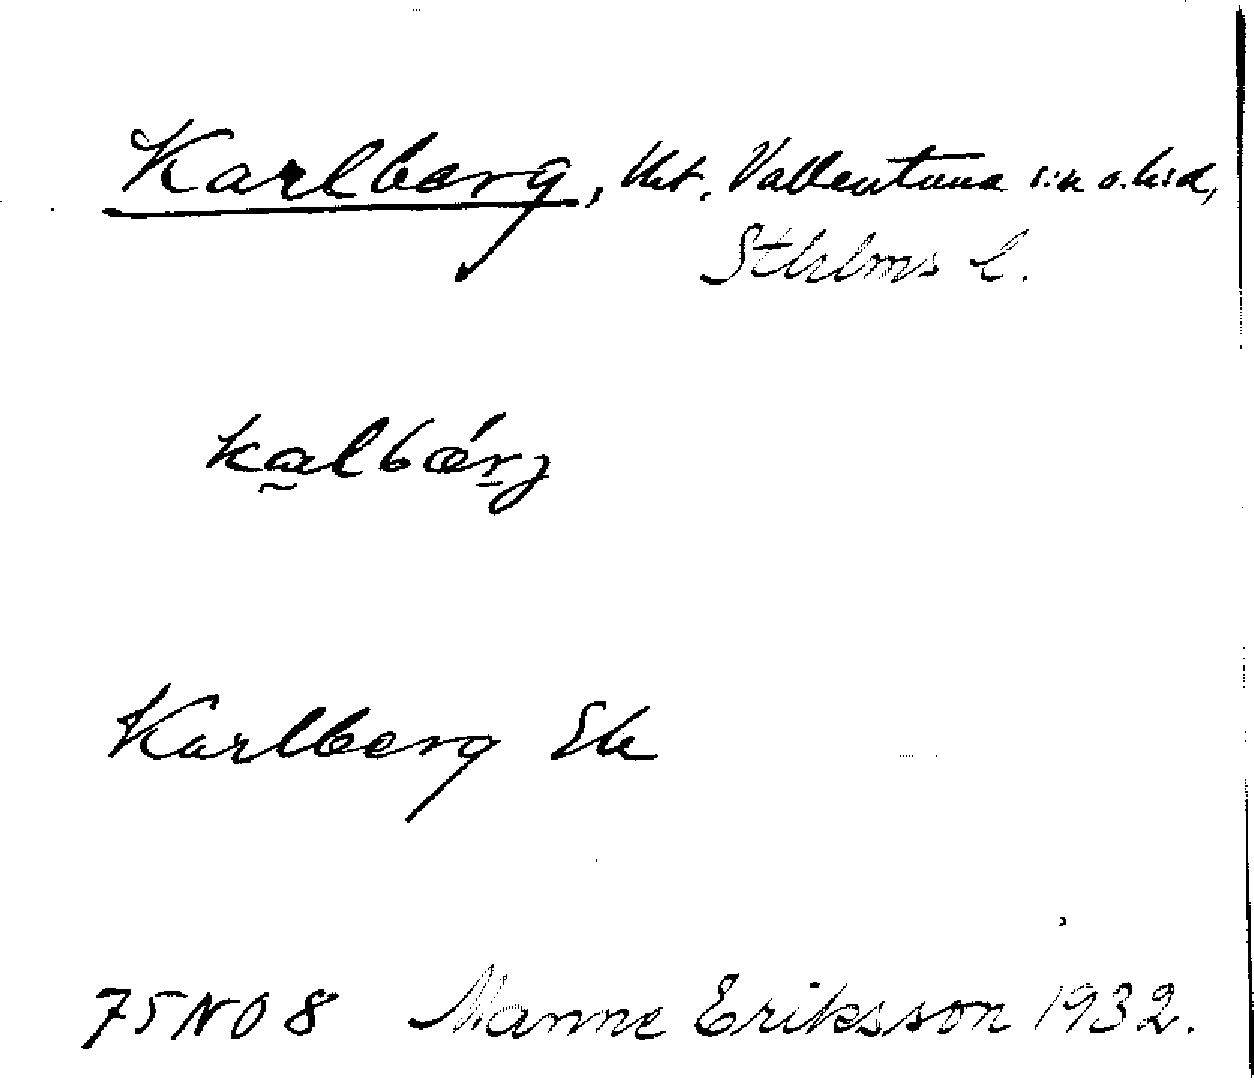 Karlberg, tkt, Vallentuna s:n o. hd,
Sthlms l.
kalbérj
Karlberg Ek
75 NO 8 Manne Eriksson 1932.